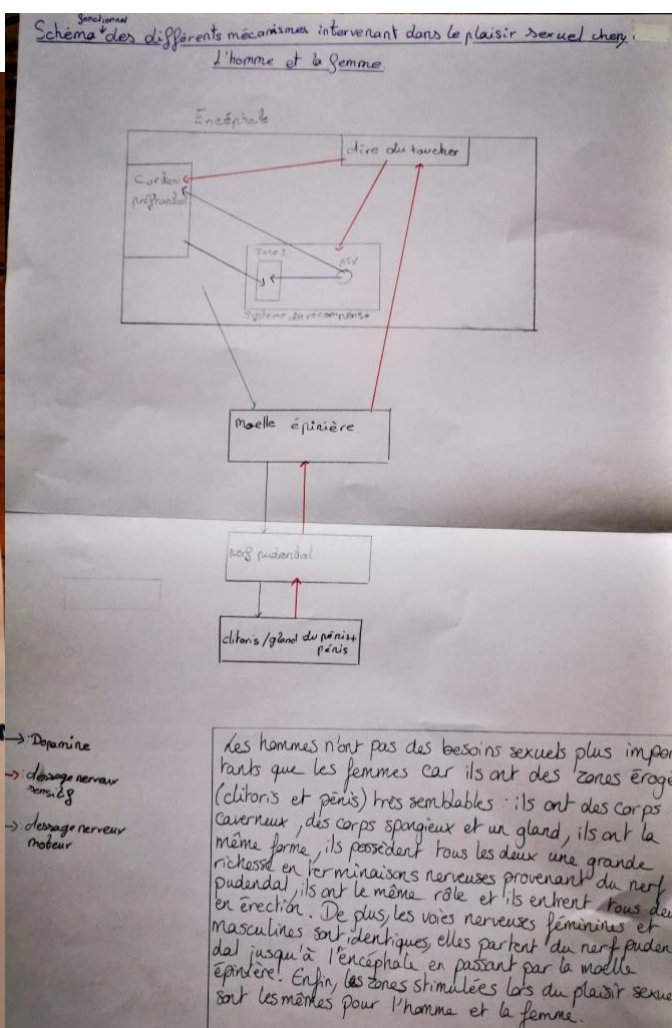 fonctionnel
Schéma des différents mécanismes intervenant dans le plaisir sexuel chez
l'homme et la femme.
Encéphale
Aire du toucher
Cortex
préfrontal
ATV
Système de récompense
moelle épinière
nerf pudendal
clitoris/gland du pénis +
pénis
→ : Dopamine
→ : Message nerveux
sensitif
→ : Message nerveux
moteur
Les hommes n'ont pas des besoins sexuels plus impor
tants que les femmes car ils ont des zones érogè
(clitoris et pénis) très semblables : ils ont des corps
caverneux, des corps spongieux et un gland, ils ont la
même forme, ils possèdent tous les deux une grande
richesse en terminaisons nerveuses provenant du nerf
pudendal, ils ont le même rôle et ils entrent tous deu
en érection. De plus, les voies nerveuses féminines et
masculines sont identiques, elles partent du nerf puden
dal jusqu'à l'encéphale en passant par la moelle
épinière. Enfin, les zones stimulées lors du plaisir sexue
sont les mêmes pour l'homme et la femme.